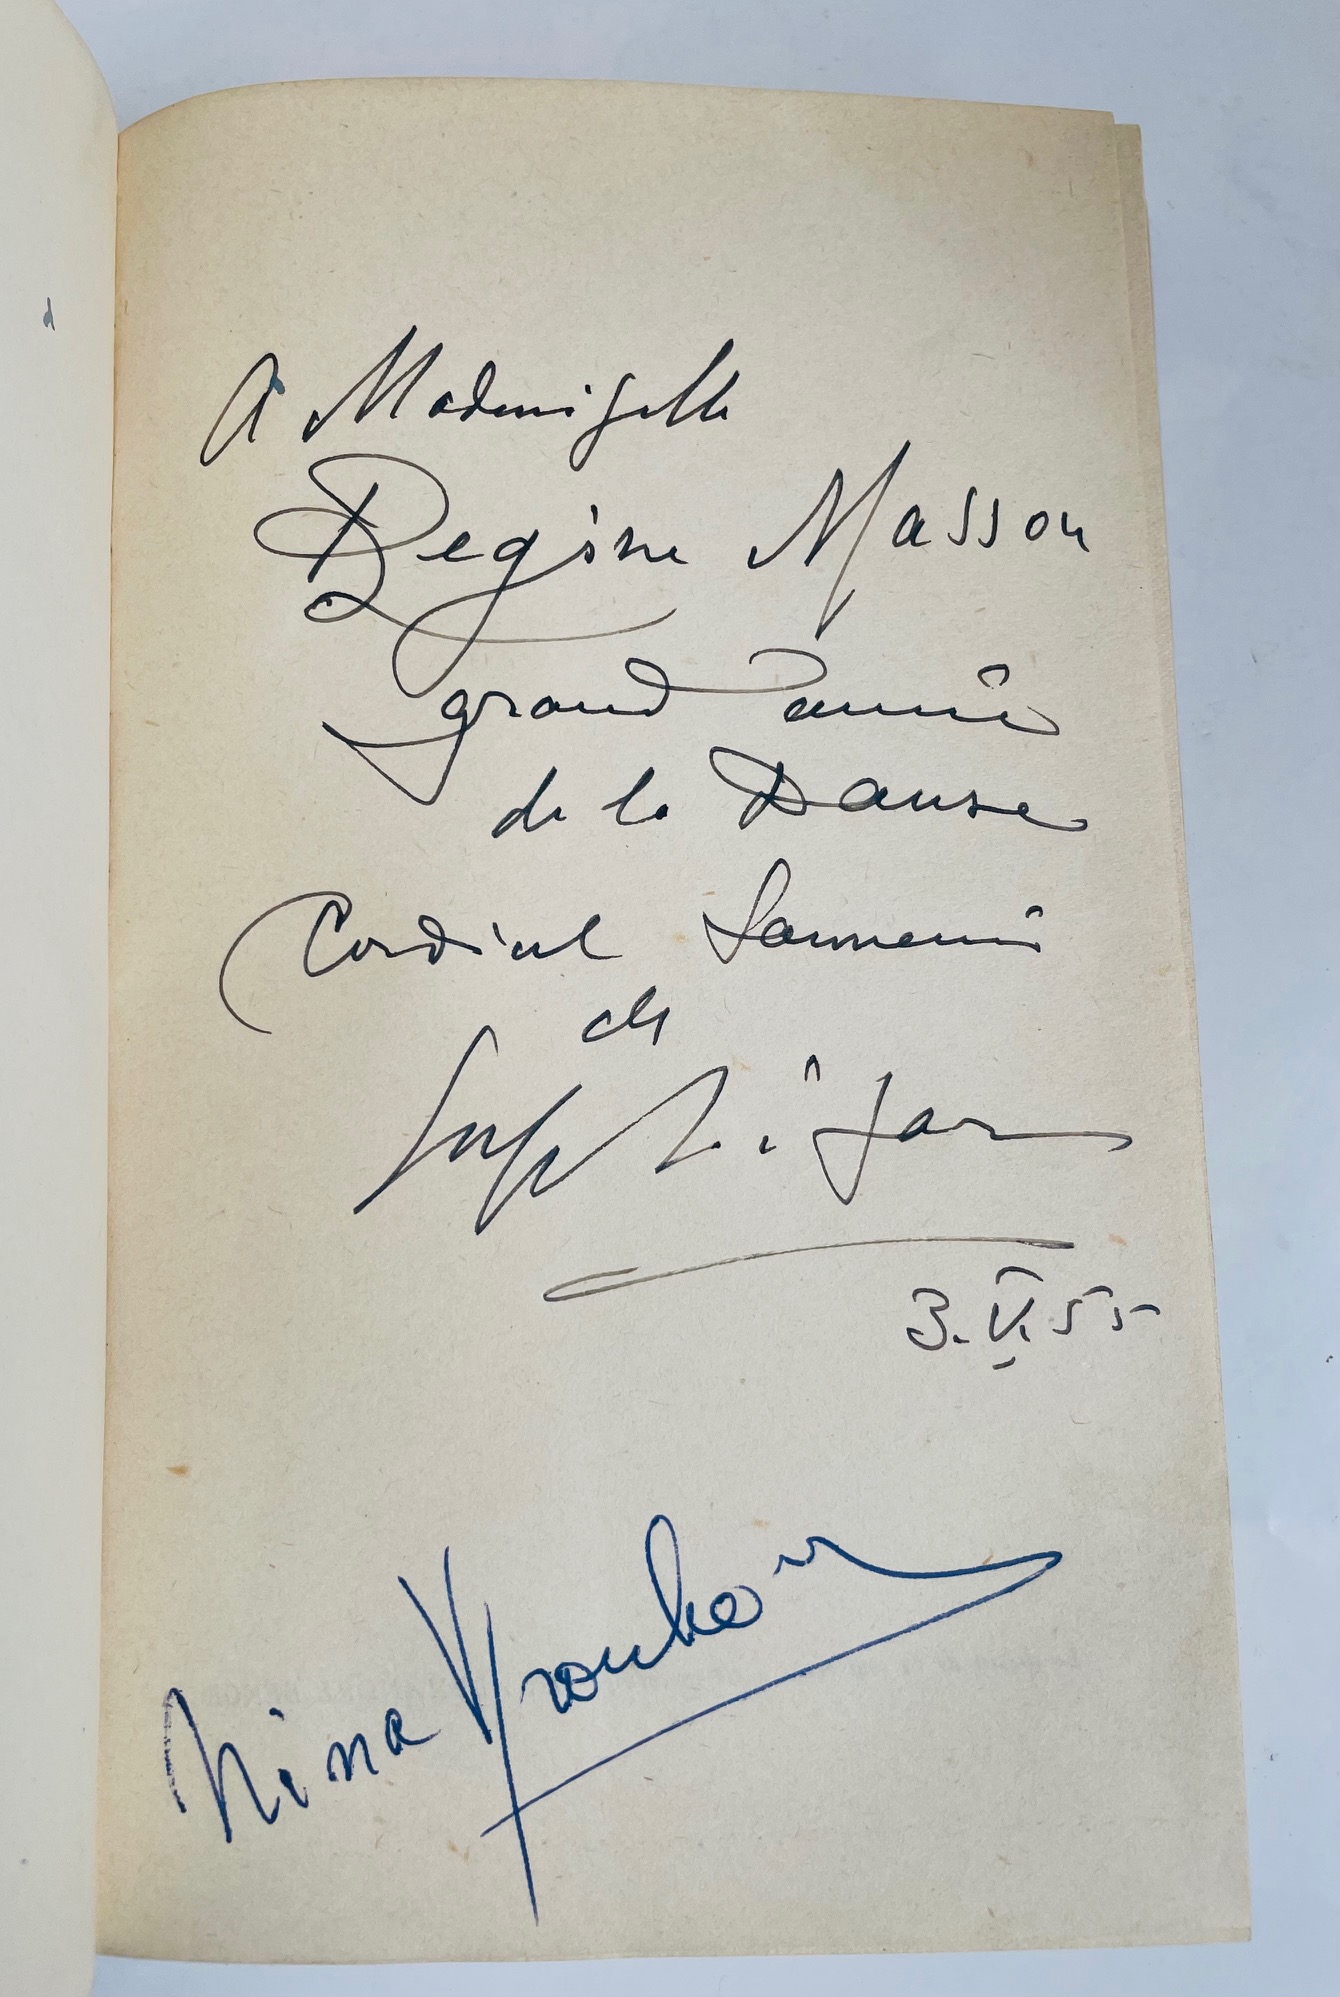 à Mademoiselle
Regine Masson
grand amie
de la Danse
Cordial Souvenir
de
Serge Lifar
3.VI.55
Nina Vyroubova